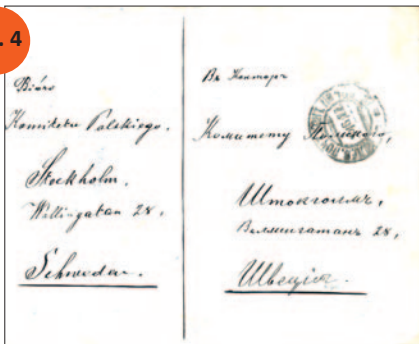 . 4
Biuro
Komitetu Polskiego.
Stockholm.
Wallingatan 28,
Schweden.
Въ Контору
Комитету Польскаго,
Штокгольмъ,
28,
Швеція.